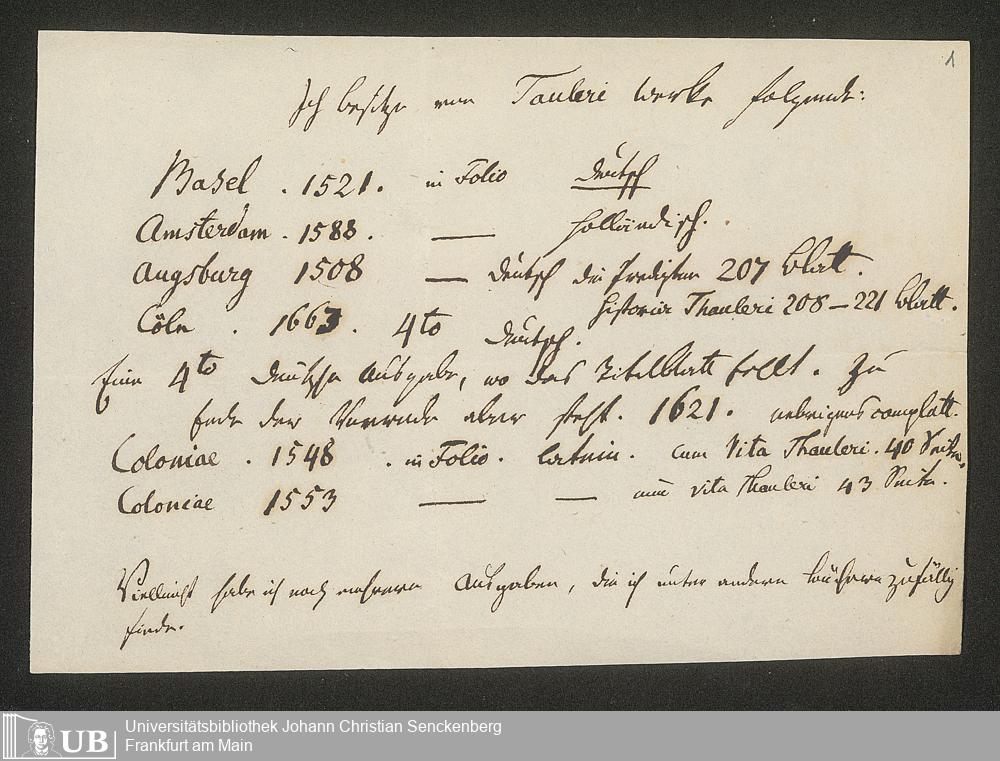 1
Ich besitze von Tauleri Werke folgende:
Basel . 1521 . in Folio deutsch
Amsterdam . 1588 . — holländisch .
Augsburg 1508 — deutsch die Predigten 207 Blatt .
Historia Thauleri 208 – 221 Blatt .
Cöln . 1663 . 4to deutsch .
Eine 4to deutsche Ausgabe, wo das Titelblatt fehlt . Zu
Ende der Vorrede aber steht . 1621 . uebrigens complett .
Coloniae . 1548 . in Folio . latein . cum Vita Thauleri . 40 Seiten .
Coloniae 1553 — — cum vita Thauleri 43 Seiten .
Vielleicht habe ich noch mehrere Ausgaben, die ich unter andern Büchern zufällig
finde .
UB
Universitätsbibliothek Johann Christian Senckenberg
Frankfurt am Main